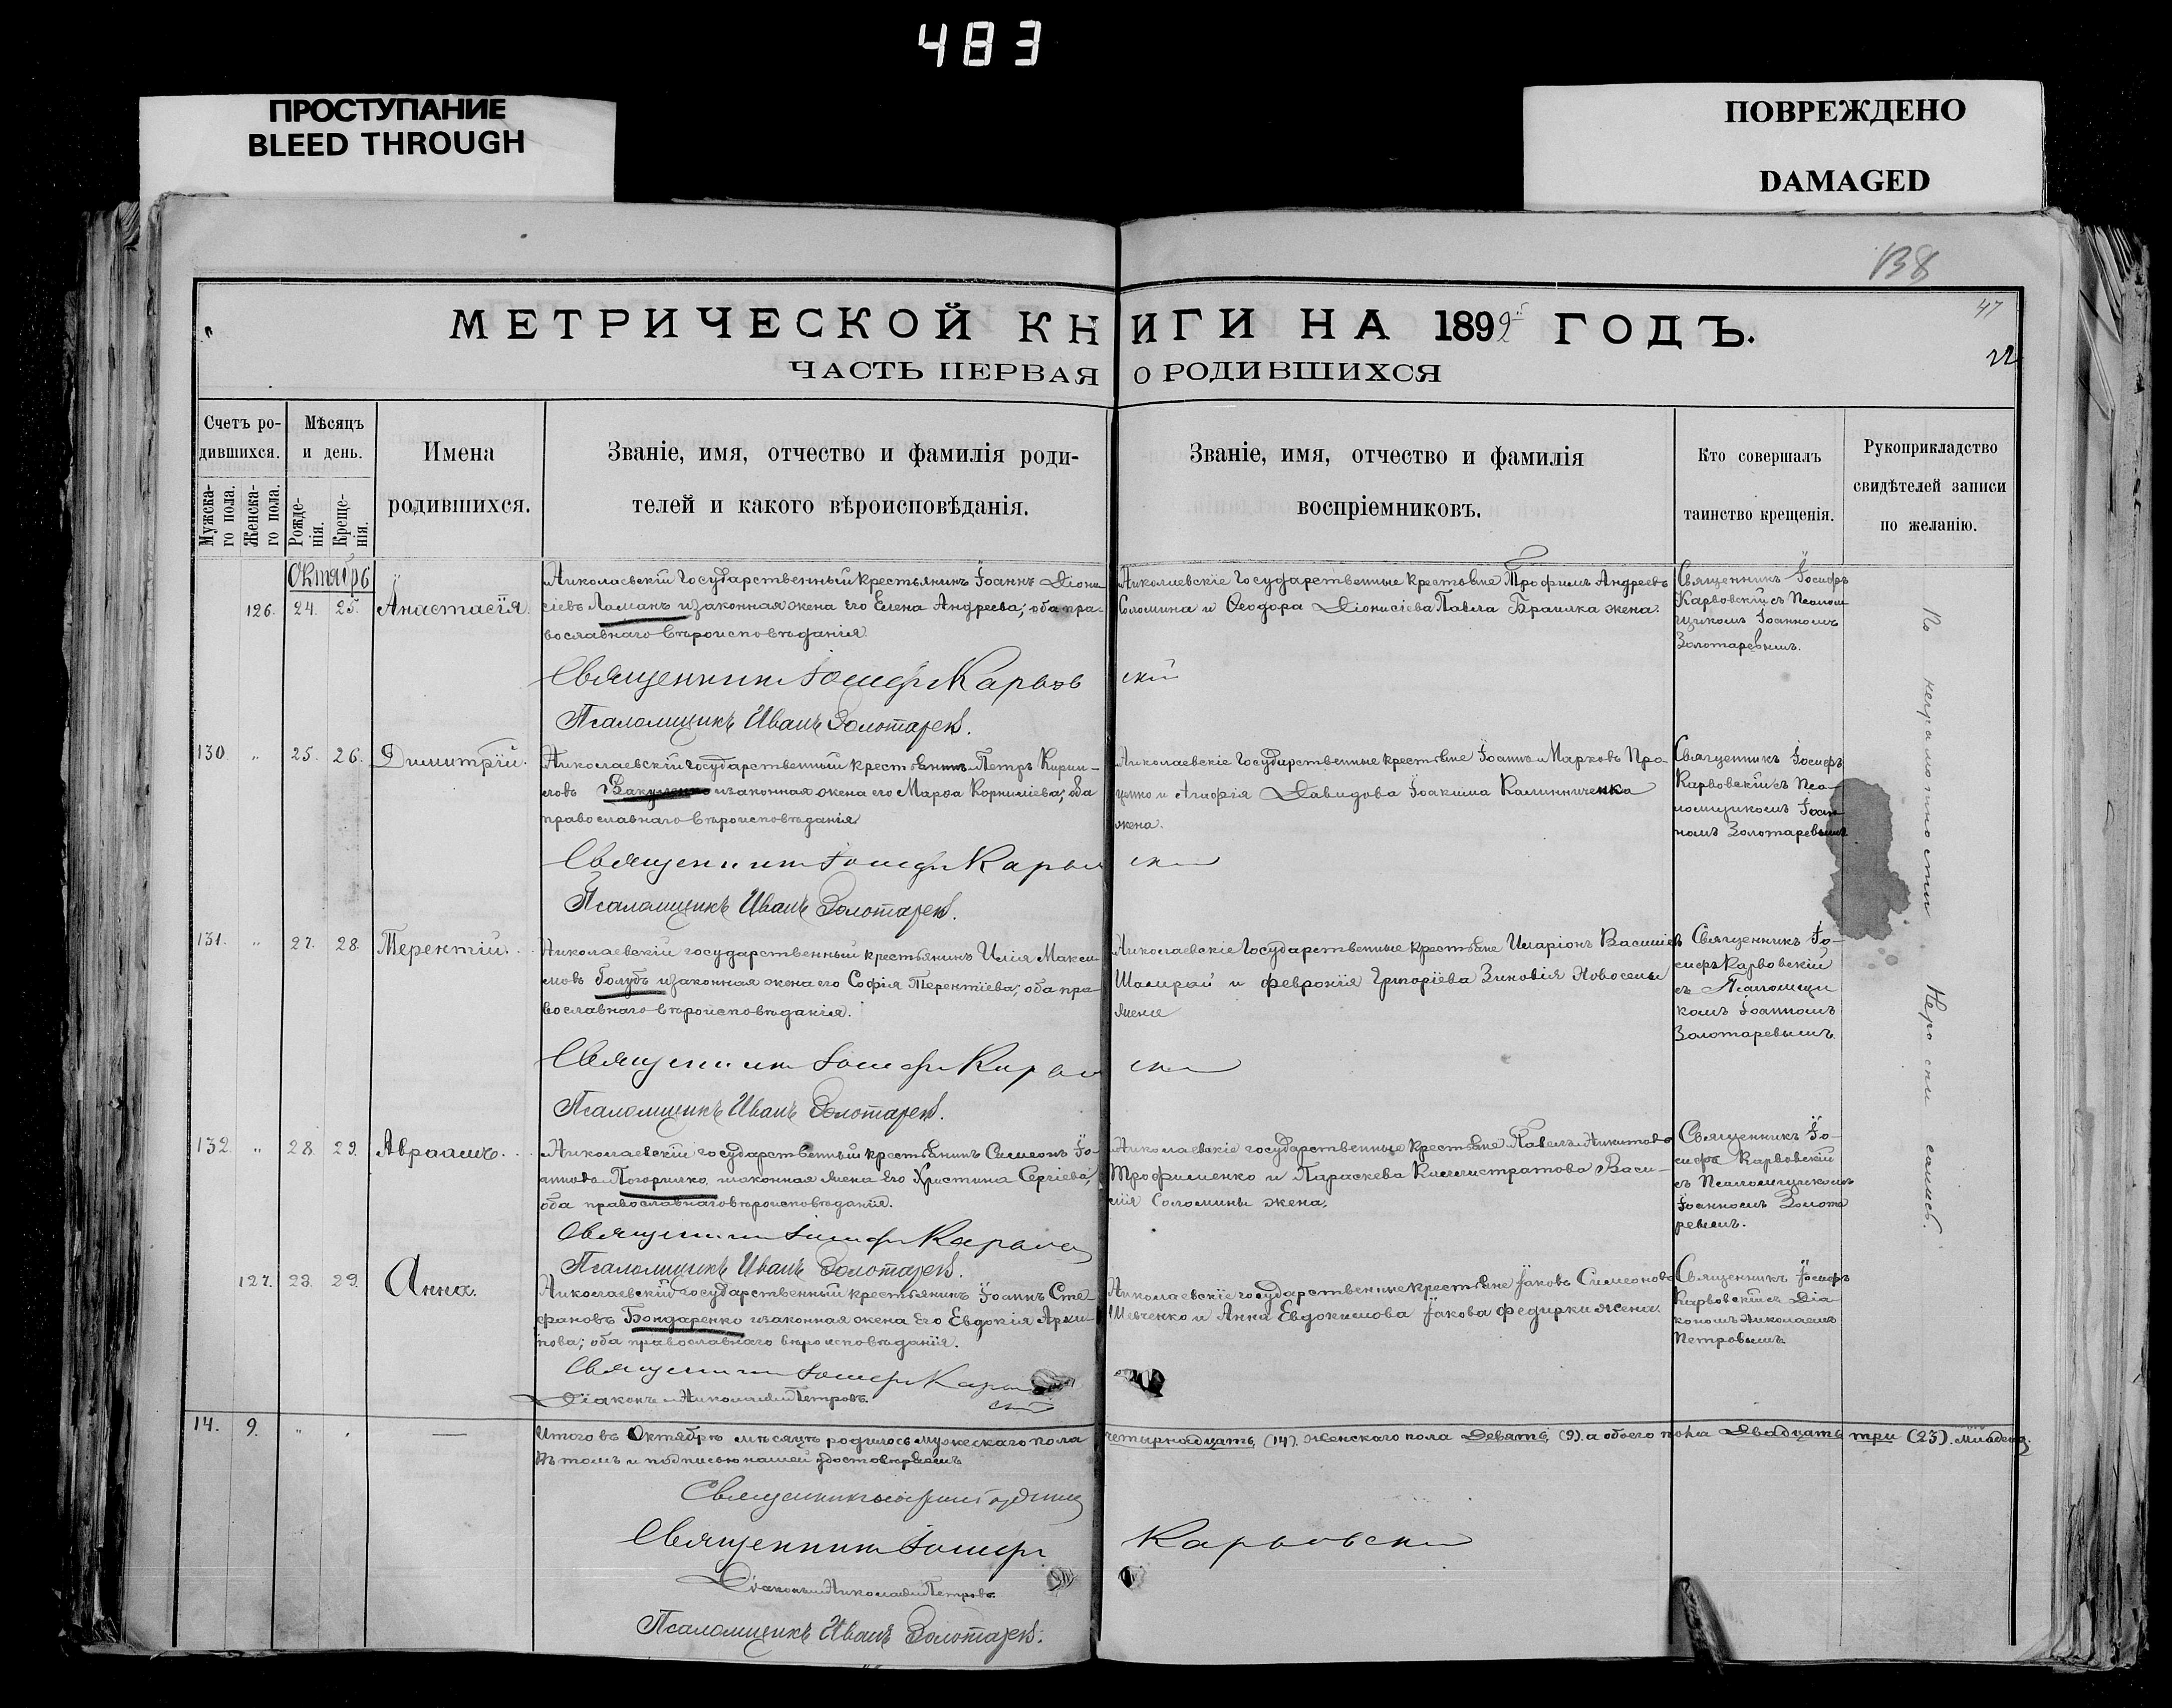 483
ПРОСТУПАНИЕ
BLEED THROUGH
ПОВРЕЖДЕНО
DAMAGED
138
47
22
МЕТРИЧЕСКОЙ КНИГИ НА 1899й ГОДЪ.
ЧАСТЬ ПЕРВАЯ О РОДИВШИХСЯ
Счетъ родившихся.
Мужскаго пола.
Женскаго пола.
Мѣсяцъ и день.
Рожденія.
Крещенія.
Имена родившихся.
Званіе, имя, отчество и фамилія родителей и какого вѣроисповѣданія.
Званіе, имя, отчество и фамилія воспріемниковъ.
Кто совершалъ таинство крещенія.
Рукоприкладство свидѣтелей записи по желанію.
Октябрь
126. 24. 25. Анастасія.
Николаевскій государственный крестьянинъ Іоаннъ Діони-
сіевъ Ламанъ и законная жена его Елена Андреева; оба пра-
вославнаго вѣроисповѣданія.
Николаевскіе государственные крестьяне Трофимъ Андреевъ
Соломина и Ѳеодора Діонисіева Павла Браилка жена.
Священникъ Іосифъ
Карвовскій съ Псалом-
щикомъ Іоанномъ
Золотаревымъ.
Священникъ Іосифъ Карвовскій
Псаломщикъ Иванъ Золотаревъ.
130. " 25. 26. Димитрій.
Николаевскій государственный крестьянинъ Петръ Кирил-
ловъ Вакуленко и законная жена его Марѳа Корнилiева; оба
православнаго вѣроисповѣданія
Николаевскіе государственные крестьяне Іоаннъ Марковъ Про-
ценко и Агафія Давидова Іоакима Калинниченка
жена.
Священникъ Іосифъ
Карвовскій съ Пса-
ломщикомъ Іоан-
номъ Золотаревымъ
Священникъ Іосифъ Карвовскій
Псаломщикъ Иванъ Золотаревъ.
131. " 27. 28. Терентій.
Николаевскій государственный крестьянинъ Илія Макси-
мовъ Голубъ и законная жена его Софія Терентіева; оба пра-
вославнаго вѣроисповѣданія.
Николаевскіе государственные крестьяне Иларіонъ Василіевъ
Шамрай и Февронія Григоріева Зиновія Новосельи
жена
Священникъ Іо-
сифъ Карвовскій
съ Псаломщи
комъ Іоанномъ
Золотаревымъ.
Священникъ Іосифъ Карвовскій
Псаломщикъ Иванъ Золотаревъ.
132. " 28. 29. Авраамъ.
Николаевскій государственный крестьянинъ Симеонъ Іо-
анновъ Погорилко и законная жена его Христина Сергіева;
оба православнаго вѣроисповѣданія.
Николаевскіе государственные крестьяне Павелъ Никитовъ
Трофименко и Параскева Каллистратова Васи-
лія Соломины жена.
Священникъ Іо-
сифъ Карвовскій
съ Псаломщикомъ
Іоанномъ Золота
ревымъ.
Священникъ Іосифъ Карвовскій
Псаломщикъ Иванъ Золотаревъ.
127. 28. 29. Анна.
Николаевскій государственный крестьянинъ Іоаннъ Сте-
фановъ Бондаренко и законная жена его Евдокія Архи-
пова; оба православнаго вѣроисповѣданія.
Николаевскіе государственные крестьяне Іаковъ Симеоновъ
Шевченко и Анна Евдокимова Іакова Федирки жена.
Священникъ Іосифъ
Карвовскій съ Діа-
кономъ Николаемъ
Петровымъ
Священникъ Іосифъ Карвовскій
Діаконъ Николай Петровъ.
По неграмотности Кро сни самъ.
14. 9. " "
Итого въ Октябрѣ мѣсяцѣ родилось мужескаго пола четырнадцать (14). женскаго пола девять, (9). а обоего пола двадцать три (23). младенц.
Въ томъ и подписью нашей удостовѣряемъ
Священникъ
Священникъ Іосифъ Карвовскій
Діаконъ Николай Петровъ.
Псаломщикъ Иванъ Золотаревъ.